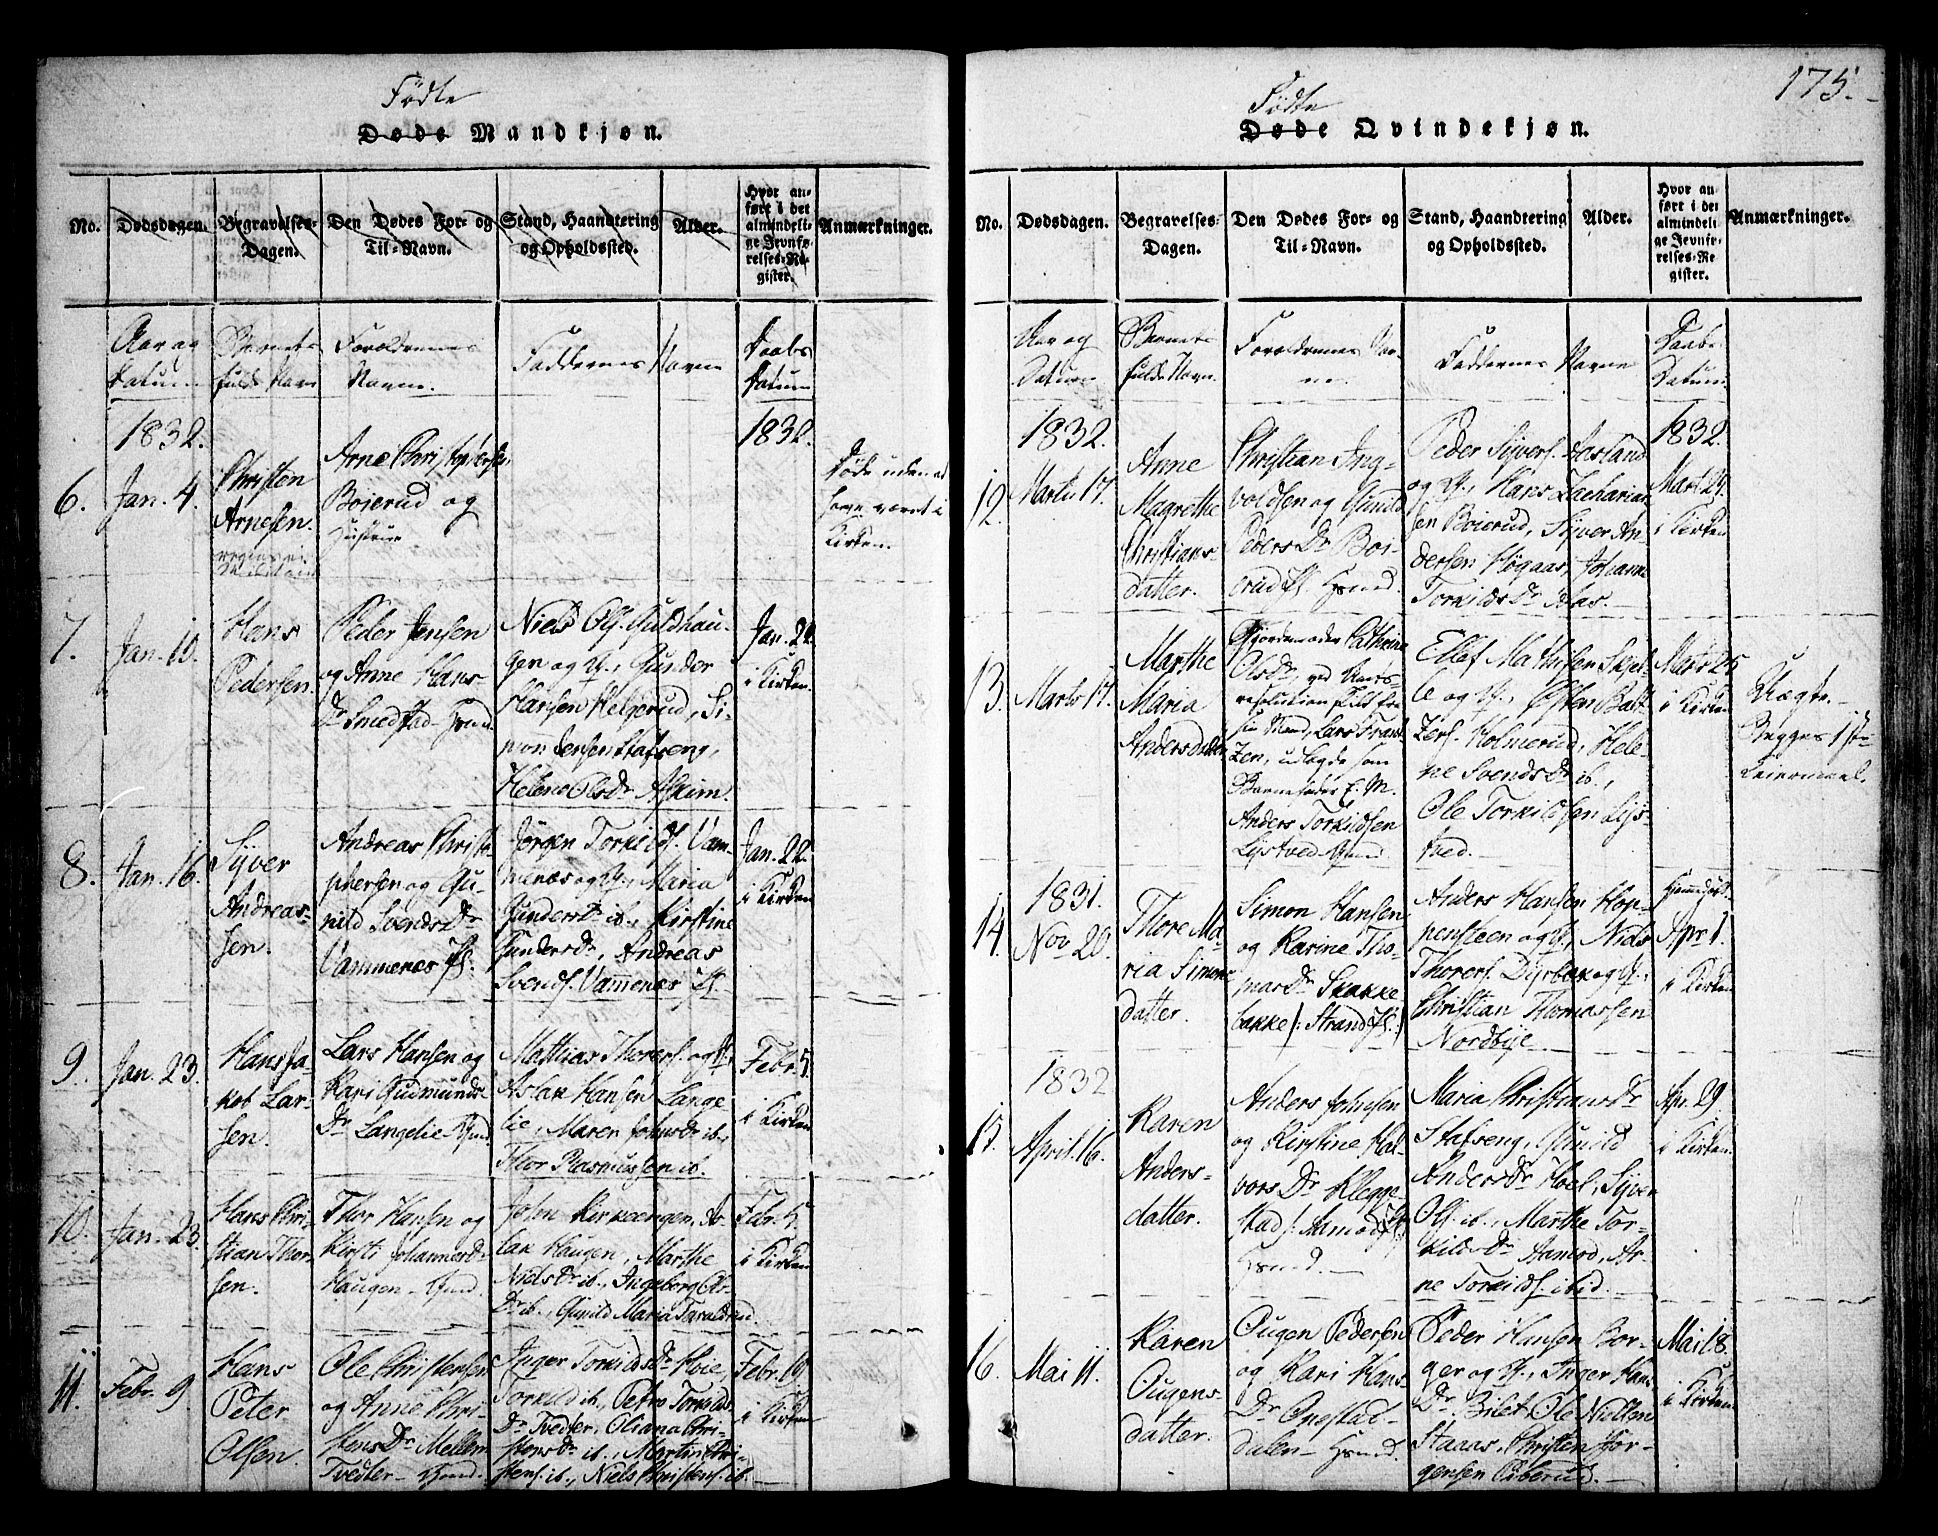 175.
Födte
Døde Mandkjøn.
No.
Dødsdagen.
Begravelses-
Dagen.
Den Dødes For- og
Til-Navn.
Stand, Haandtering
og Opholdssted.
Alder.
Hvor an-
ført i det
almindeli-
ge Jevnfø-
relses-Re-
gister.
Anmærkninger.
Aar og
Datum
Barnets
fulde Navn
Forældrenes
Navne.
Faddernes Navne
Daabs
Datum
1832.
1832.
6.
Jan. 4.
Christen
Arnesen.
Arne Christophersen
Boierud og
Hustrue
Døde uden at
have været i
Kirken.
7.
Jan. 10.
Hans
Pedersen.
Peder Jensen
og Anne Hans-
Dr Smedstad
Niels Ols. Guldhau-
gen og H., Gunder
Hansen Helgerud, Si-
mon Jensen Stafseng,
Helene Olsdr Askim.
Jan. 22
i Kirken.
8.
Jan. 16.
Syver
Andreas-
sen.
Andreas Christo-
phersen og Gu-
nild Svends Dr
Vammenes
Jørgen Torkilds. Vam-
menes og H., Maria
Gundersdr ib., Kirstine
Gundersdr, Andreas
Svends. Vammenes
Jan. 22.
i Kirken
9.
Jan. 23.
Hans Ja-
kob Lar-
sen.
Lars Hansen og
Kari Gudmunds-
Dr Langelie
Mathias Thorers. og H.
Aslak Hansen Lange
lie, Maren Johns Dr ib.,
Thor Rasmussen ib.
Febr. 5.
i Kirken
10.
Jan. 23.
Hans Chri-
stian Thor-
sen.
Thor Hansen og
Kirsti Johannesdr
Haugen
John Kirkeengen, As-
lak Haugen, Marthe
Niels Dr ib., Ingeborg Ols
Dr ib., Gunild Maria Taraldrud
Febr. 5.
i Kirken
11.
Febr. 9.
Hans
Peter
Olsen.
Ole Christensen
og Anne Chri-
stens Dr Mellem
Tvedter
Inger Torkildsdr Hoie,
Torkild ib., Petro Torkilds
Dr Tvedter, Oliana Chri-
stens Dr ib., Martin Chri-
stens. ib., Niels Christens. ib.
Febr. 19.
i Kirken
Födte
Døde Qvindekjøn.
No.
Dødsdagen.
Begravelses-
Dagen.
Den Dødes For- og
Til-Navn.
Stand, Haandtering
og Opholdssted.
Alder.
Hvor an-
ført i det
almindeli-
ge Jevnfø-
relses-Re-
gister.
Anmærkninger.
Aar og
Datum
Barnets
fulde Navn.
Forældrenes Nav-
ne.
Faddernes Navne
Daabs
Datum
1832.
1832.
12.
Marts 17.
Anne
Magrethe
Christians
datter.
Christian Ing-
voldsen og Gunild
Peders Dr Boi-
erud
Peder Syvers. Aasland
og H., Hans Zacharias
sen Boierud, Syver An-
dersen Högaas, Johanne
Torkilds Dr
Marts 29.
i Kirken
13.
Marts 17.
Marthe
Maria
Andersdatter
Gjordemoder Cathrine
Olsdr, ved Amts-
resolution skilt fra
sin Mand, Lars Frant-
zen, udlagde som
Barnefader E. M.
Anders Torkildsen
Lystved
Ellef Mathisen Skjel-
le og H., Østen Balt-
zers. Holmerud, Hele-
ne Svends Dr ib.,
Ole Torkildsen Lys-
tved.
Marts 25
i Kirken
Uægte.
Begges 1ste
Leiermaal.
1831.
14.
Nov. 20.
Thore Ma-
ria Simons
datter.
Simon Hansen
og Karine Tho-
mas Dr Skakke
bakke /: Strand :/
Anders Hansen Hop-
pensteen og H., Niels
Thorers. Dysbak og H.,
Christian Thomassen
Nordbye
Hjemmedöbt
Apr. 1.
i Kirken
1832
15.
April 16.
Karen
Anders-
datter.
Anders Johnsen
og Kirstine Hal-
vors Dr Klegge-
stad
Maria Christians Dr
Stafseng, Gunild
Anders Dr Hoel, Syver
Ols. ib., Marthe Tor-
kilds Dr Aamod, Ar-
ne Torkilds. ibid.
Apr. 29
i Kirken
16.
Mai 11.
Karen
Ougens-
datter.
Ougen Pedersen
og Kari Hans-
Dr Onestad-
dalen
Peder Hansen Bor-
ger og H., Inger Hans
Dr Bilet, Ole Nielsen
Staaas, Christen Jør-
gensen
Mai 18.
i Kirken